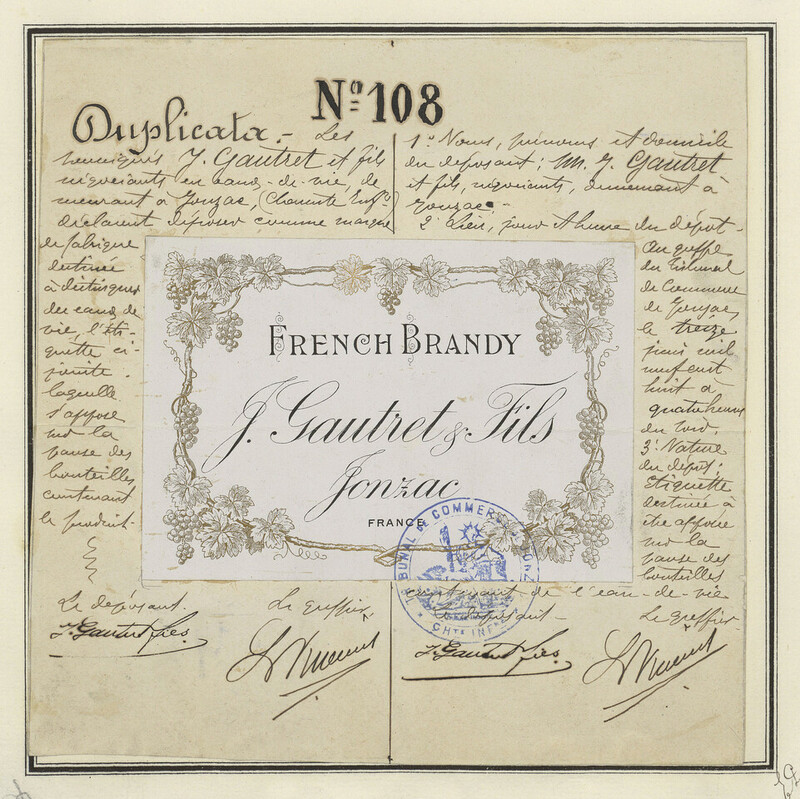 Nº 108
Duplicata. - Les
soussignés J. Gautret et fils
négociants en eaux-de-vie, de
meurant à Jonzac, (Charente Infre)
déclarent déposer comme marque
de fabrique
destinée
à distinguer
des eaux de
vie, l'éti-
quette ci-
jointe.
laquelle
s'appose
sur la
panse des
bouteilles
contenant
le produit.
Le déposant.
Le greffier
J. Gautret fils
1º Noms, prénoms et domicile
du déposant; MM. J. Gautret
et fils, négociants, demeurant à
Jonzac.
2º Lieu, jour et heure du dépôt.
Au greffe
du Tribunal
de Commerce
de Jonzac,
le treize
juin mil
neuf cent
huit à
quatre heures
du soir.
3º Nature
du dépôt:
Etiquette
destinée à
être apposée
sur la
panse des
bouteilles
contenant de l'eau-de-vie
Le déposant.
Le greffier
J. Gautret fils
FRENCH BRANDY
J. Gautret & Fils
Jonzac
FRANCE
TRIBUNAL DE COMMERCE JONZAC
CHTE INFRE